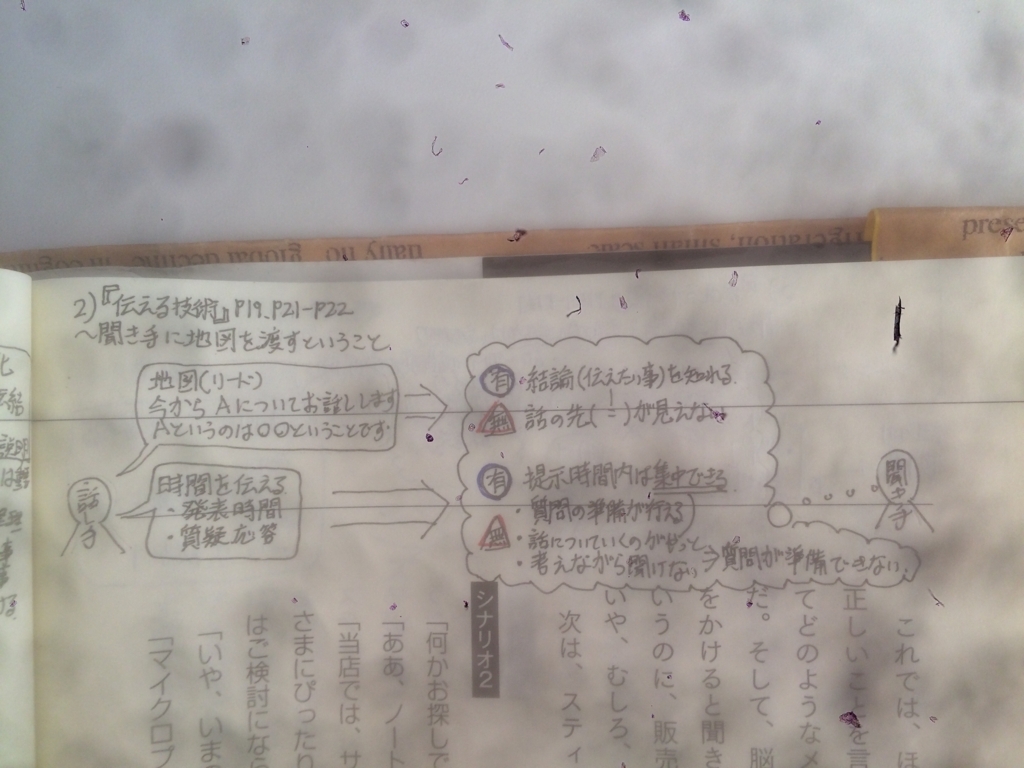 prese
2)『伝える技術』P19、P21-P22
〜聞き手に地図を渡すということ。
地図(リード)
今から Aについてお話しします
Aというのは〇〇ということです
時間を伝える
・発表時間
・質疑応答
話し手
有 ・結論(伝えたい事)を知れる
無 ・話の先(〃)が見えない
有 ・提示時間内は集中できる
・質問の準備が行える
無 ・話についていくのがやっと
・考えながら聞けない→質問が準備できない。
聞き手
これでは、ほ
正しいことを言
てどのようなメ
だ。そして、脳
をかけると聞き
いうのに、販売
いや、むしろ、
次は、スティ
シナリオ2
「何かお探しで
「ああ、ノート
「当店では、サ
さまにぴったり
はご検討になら
「いや、いまの
「マイクロプ